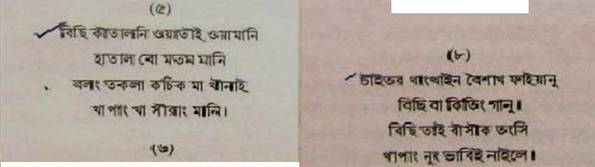 (৫)
বিছি কাতালনি ওয়াতৈই ওয়ামানি
হাতাল বো মতম মানি
বলং তকলা কচিক মা খানাই
খাপাং খা সীরাং মানি।
(৬)
(৮)
চাইতর থাংথাইন বৈশাখ ফাইয়ানু
বিছি বা কিতিং পানু।
বিছি তাই বাসীক তংসি
খাপাং নুং ভাবিই নাইলে।